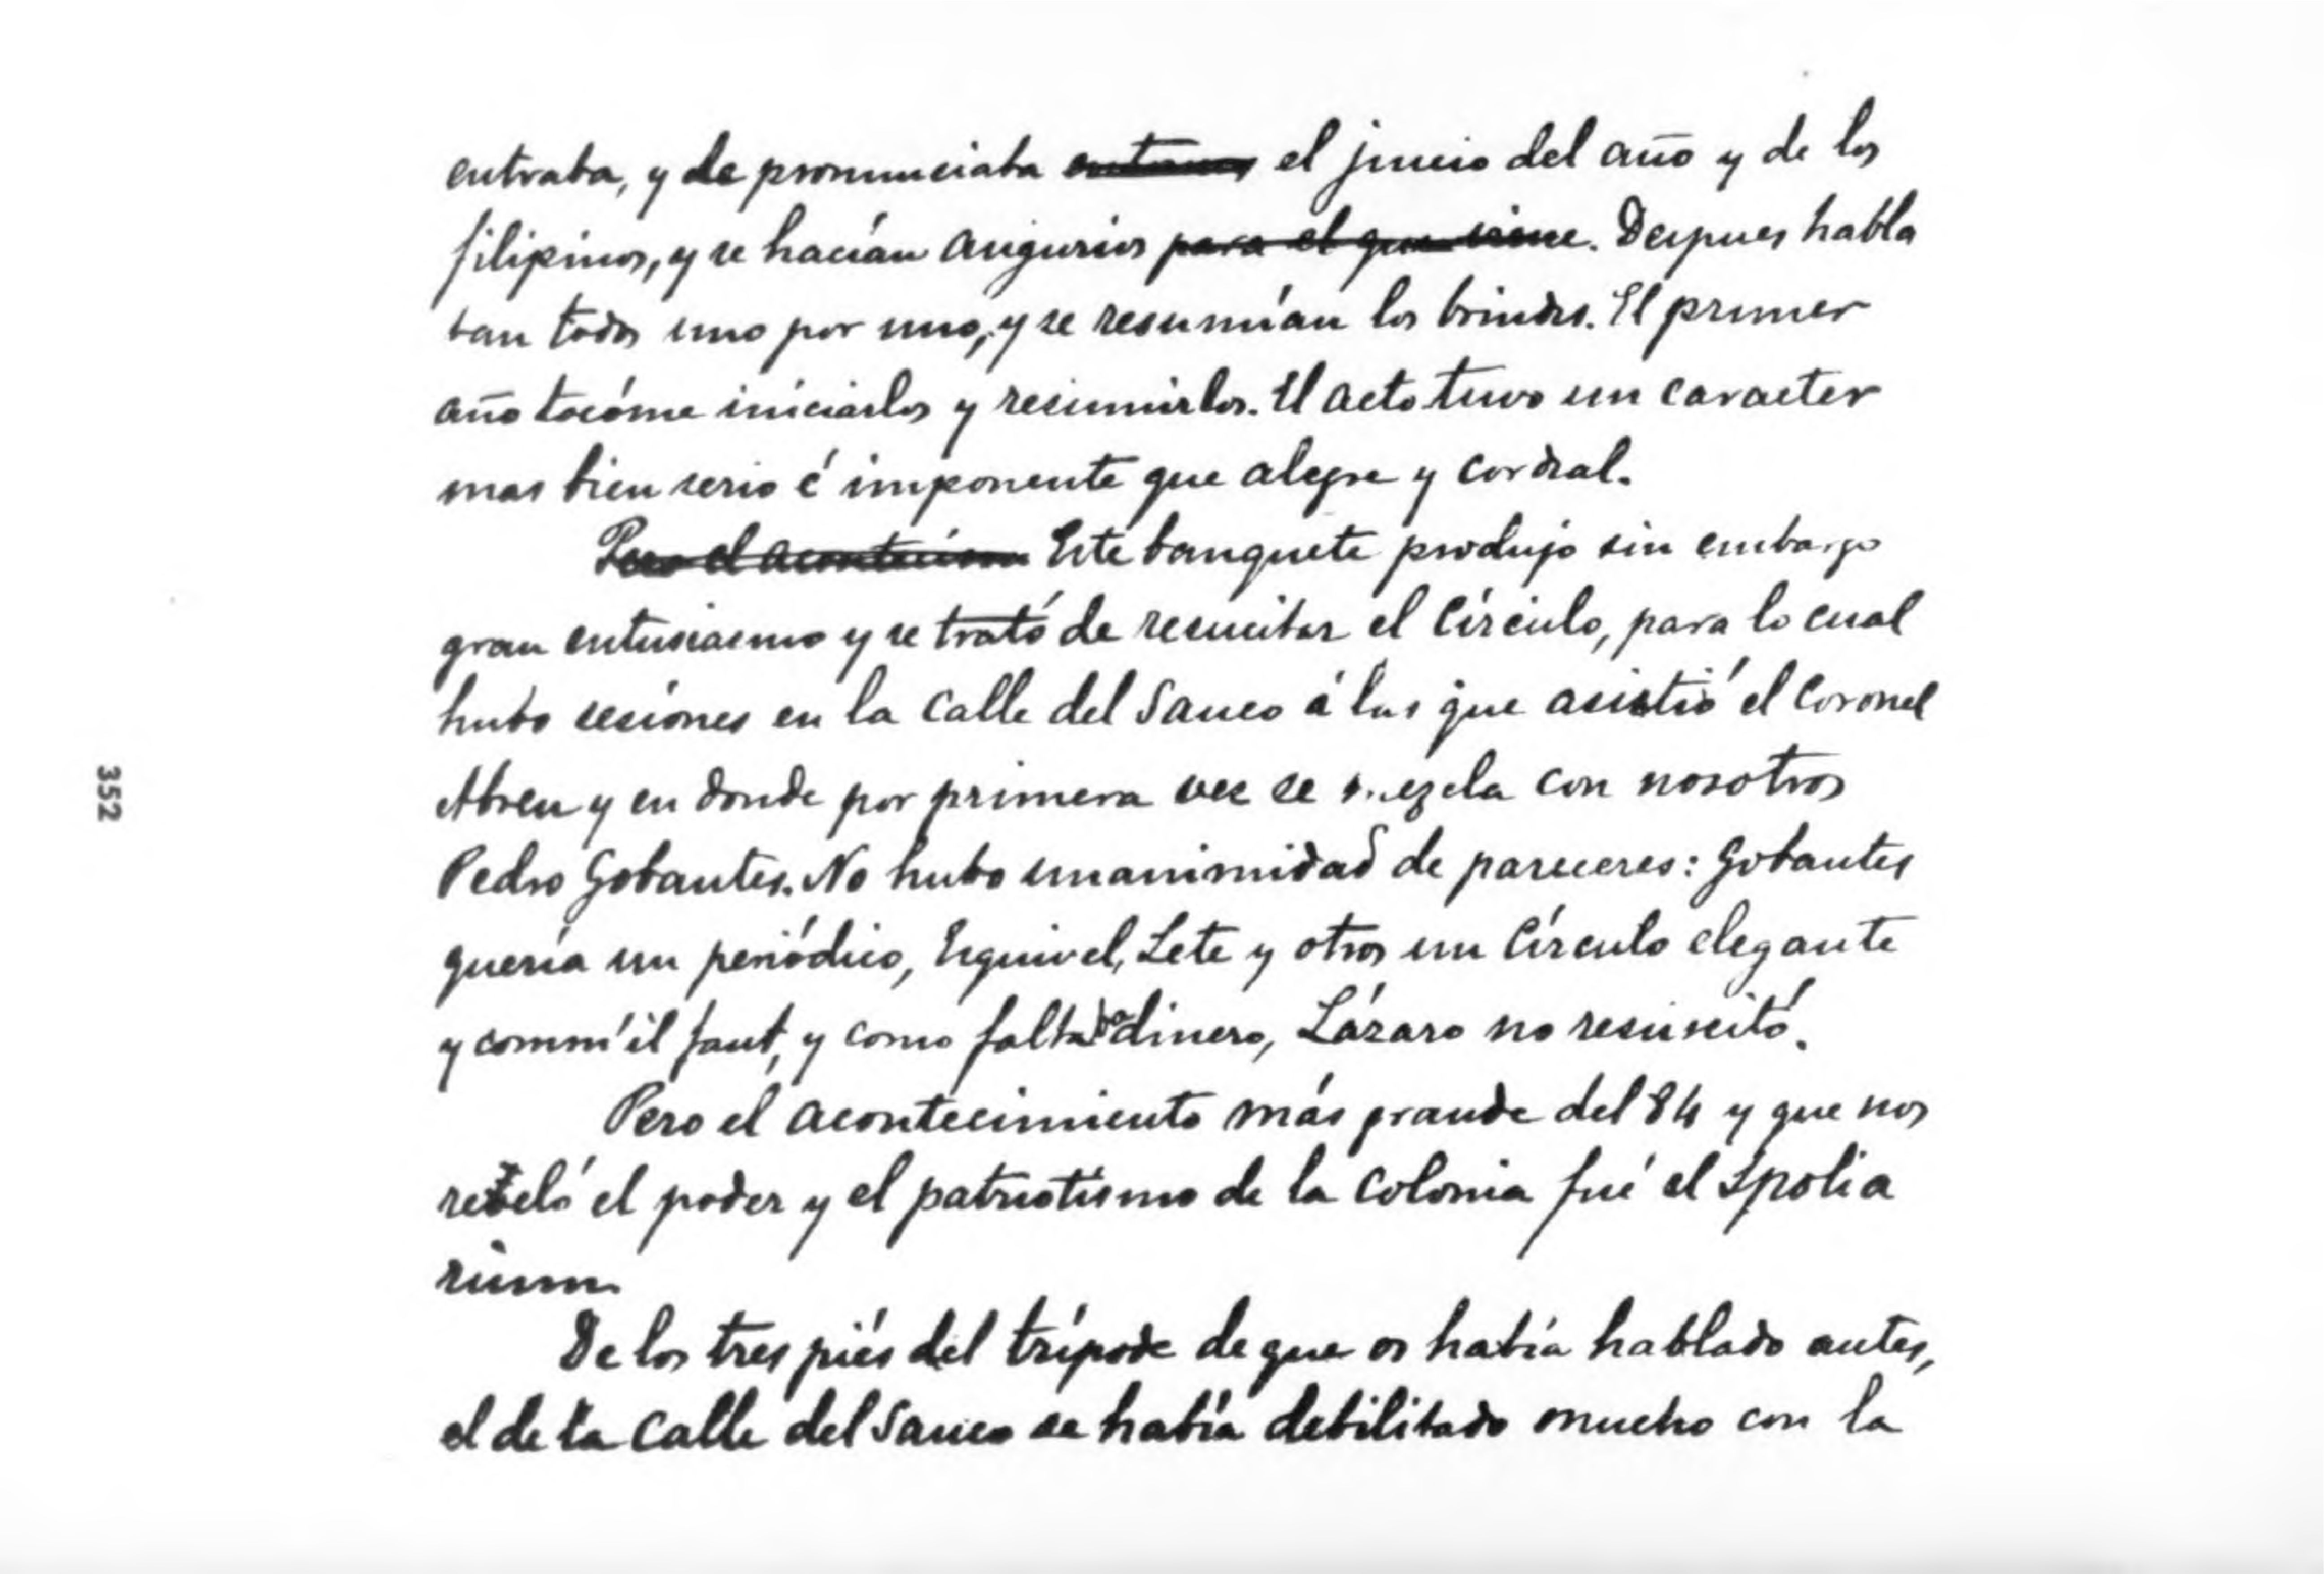 entraba, y de pronunciaba entonces el juicio del año y de los
filipinos, y se hacían augurios para el que viene. Despues habla
ban todos uno por uno, y se resumían los brindis. El primer
año tocóme iniciarlos y resumirlos. El acto tuvo un caracter
mas bien serio é imponente que alegre y cordial.
Pero el acontecim Este banquete produjo sin embargo
gran entusiasmo y se trató de resucitar el Círculo, para lo cual
hubo sesiones en la calle del Sauco á las que asistió el Coronel
Abreu y en donde por primera vez se mezcla con nosotros
Pedro Gobantes. No hubo unanimidad de pareceres: Gobantes
quería un periódico, Esquivel, Lete y otros un Círculo elegante
y comm'il faut, y como faltaba dinero, Lázaro no resuscitó.
Pero el acontecimiento más grande del 84 y que nos
reveló el poder y el patriotismo de la colonia fué el Spolia
rium.
De los tres piés del trípode de que os había hablado antes,
el de la calle del Sauco se había debilitado mucho con la
352